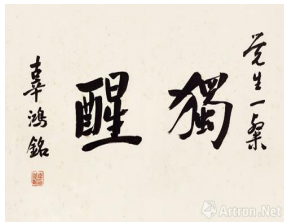 觉生一粲
獨醒
辜鴻銘
Artron.Net